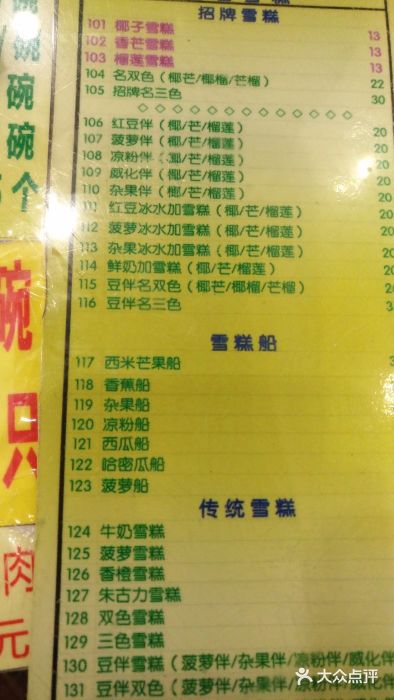 招牌雪糕
101 椰子雪糕 13
102 香芒雪糕 13
103 榴莲雪糕 13
104 名双色（椰芒/椰榴/芒榴） 22
105 招牌名三色 30
106 红豆伴（椰/芒/榴莲） 20
107 菠萝伴（椰/芒/榴莲） 20
108 凉粉伴（椰/芒/榴莲） 20
109 威化伴（椰/芒/榴莲） 20
110 杂果伴（椰/芒/榴莲） 20
111 红豆冰水加雪糕（椰/芒/榴莲） 20
112 菠萝冰水加雪糕（椰/芒/榴莲） 20
113 杂果冰水加雪糕（椰/芒/榴莲） 20
114 鲜奶加雪糕（椰/芒/榴莲） 20
115 豆伴名双色（椰芒/椰榴/芒榴）
116 豆伴名三色
雪糕船
117 西米芒果船
118 香蕉船
119 杂果船
120 凉粉船
121 西瓜船
122 哈密瓜船
123 菠萝船
传统雪糕
124 牛奶雪糕
125 菠萝雪糕
126 香橙雪糕
127 朱古力雪糕
128 双色雪糕
129 三色雪糕
130 豆伴雪糕（菠萝伴/杂果伴/凉粉伴/威化伴
131 豆伴双色（菠萝伴/杂果伴/凉粉伴/威化伴
碗
碗
碗
个
碗
只
肉
元
大众点评